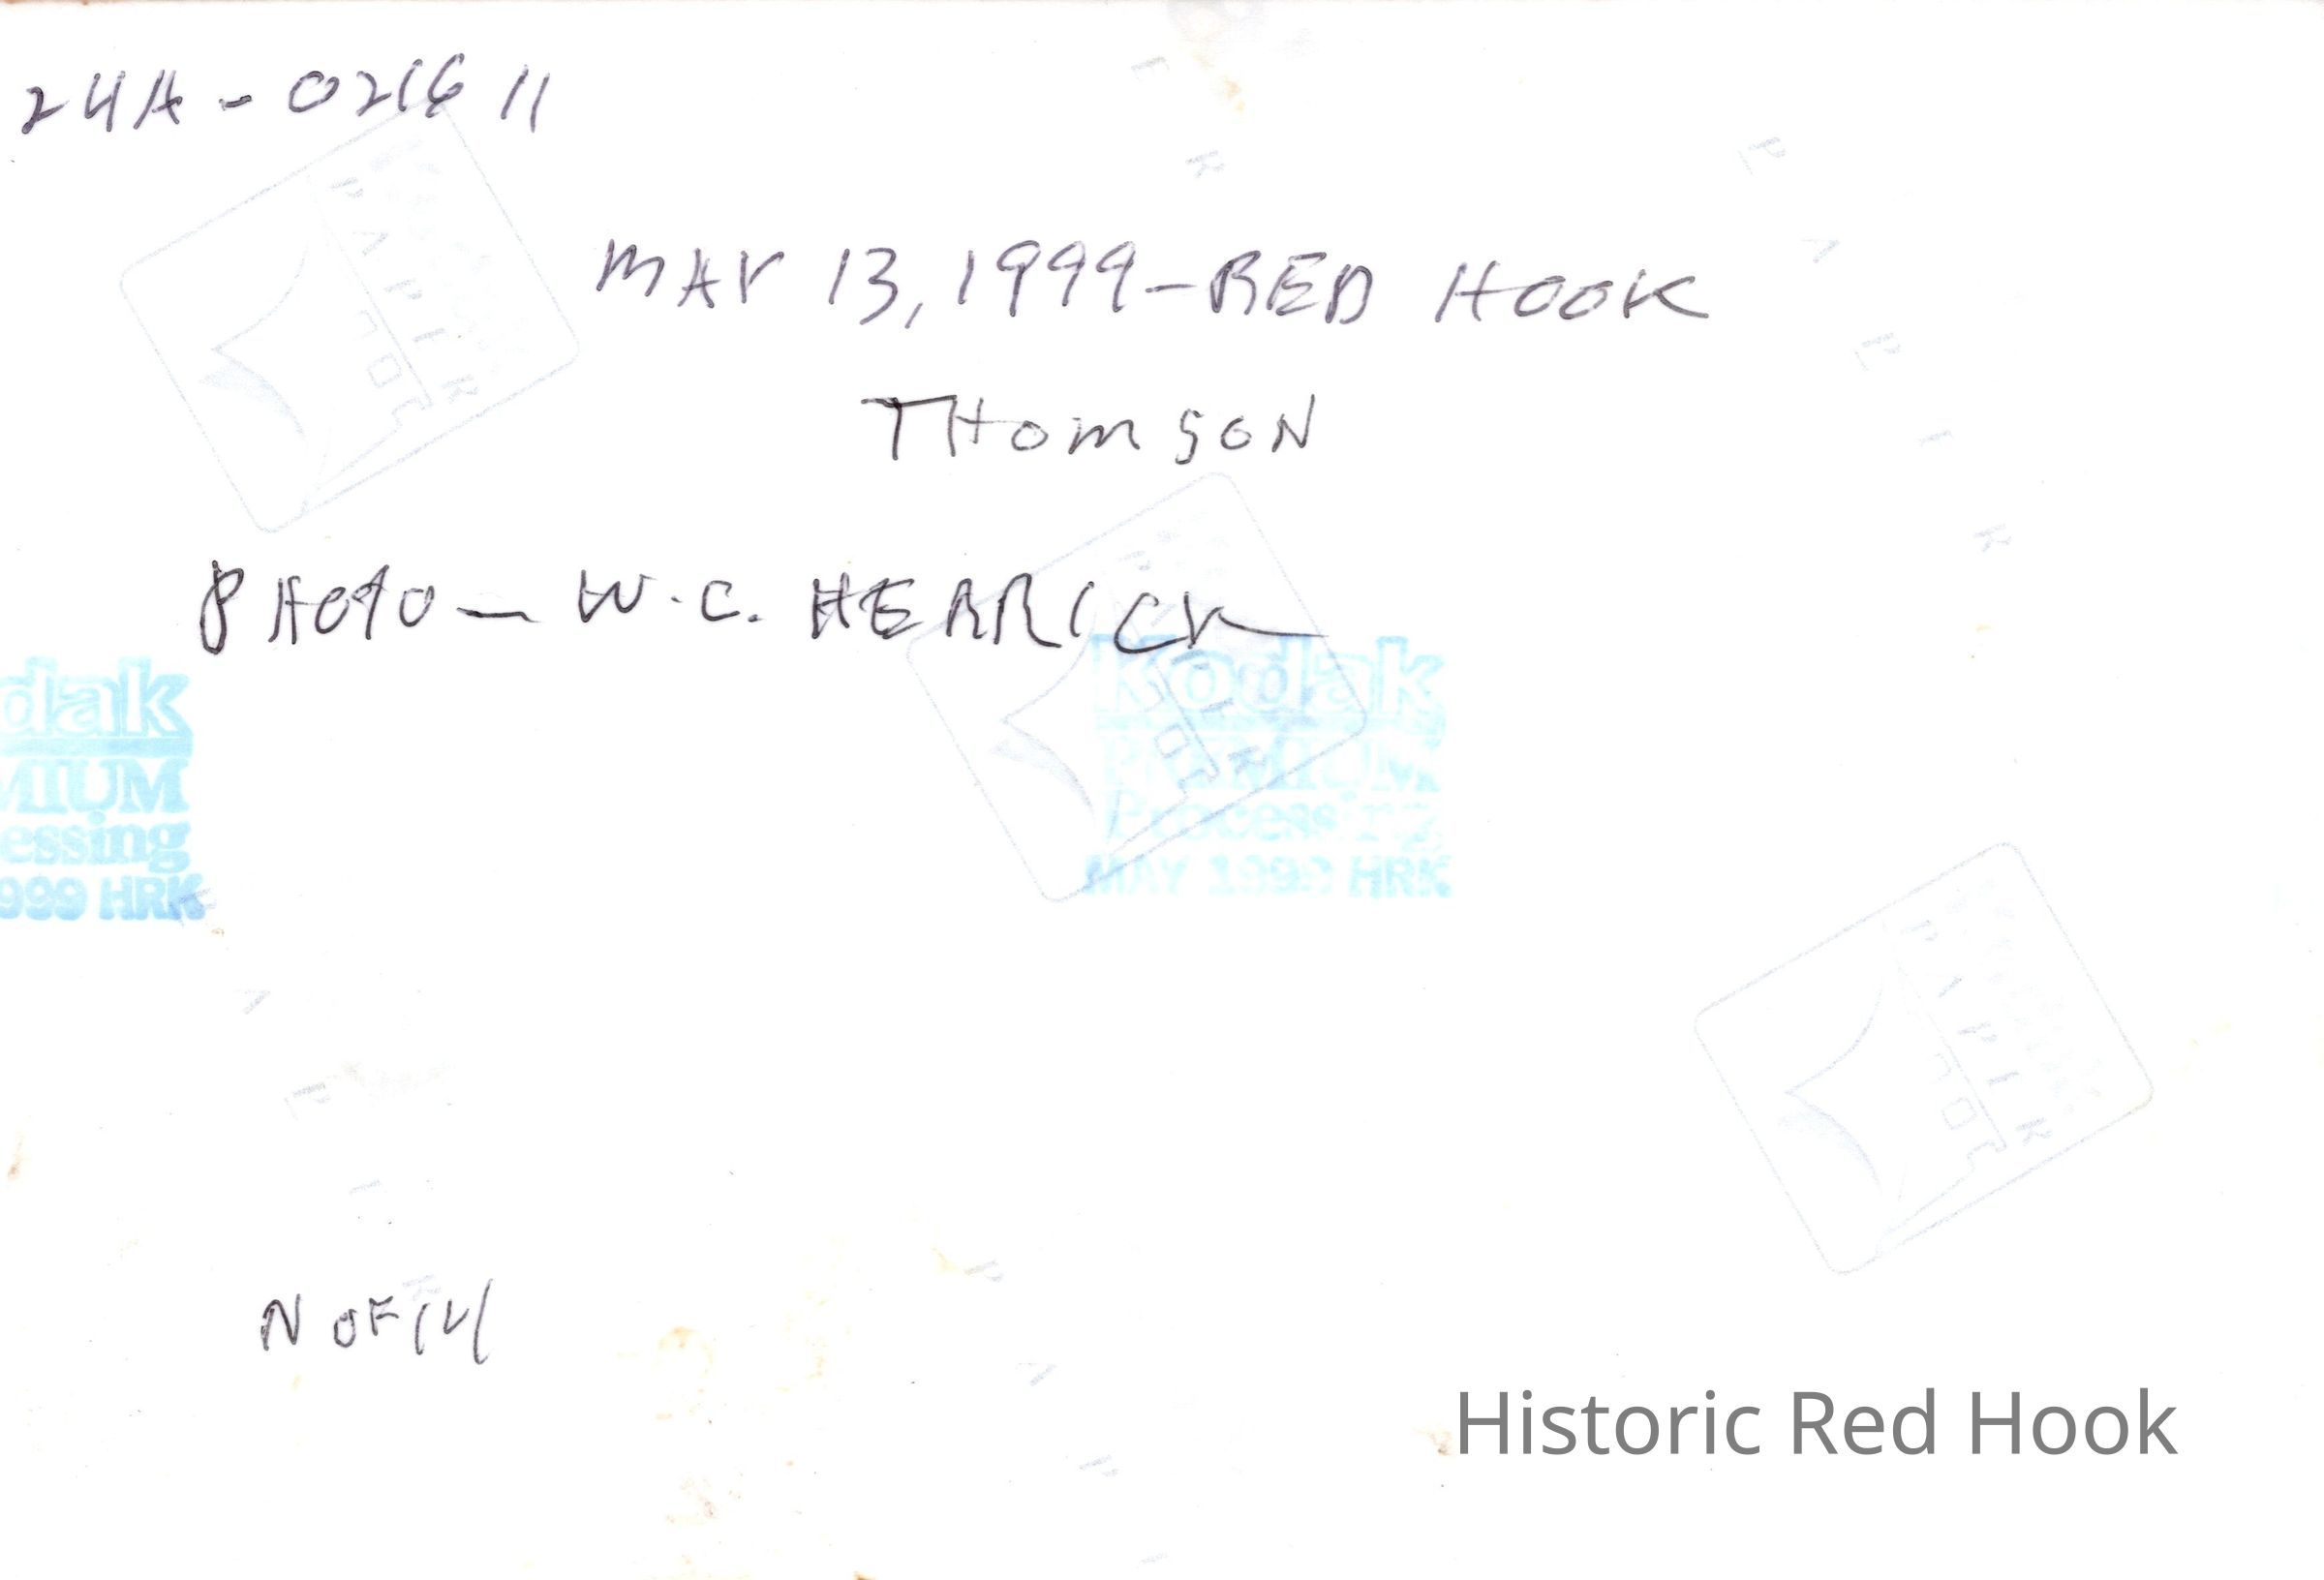 24A - 0216 11
MAY 13, 1999 - RED HOOK
THOMSON
PHOTO - W.C. HERRICK
dak
MIUM
essing
999 HRK
Kodak
PREMIUM
Processing
MAY 1999 HRK
N OF 14
Historic Red Hook